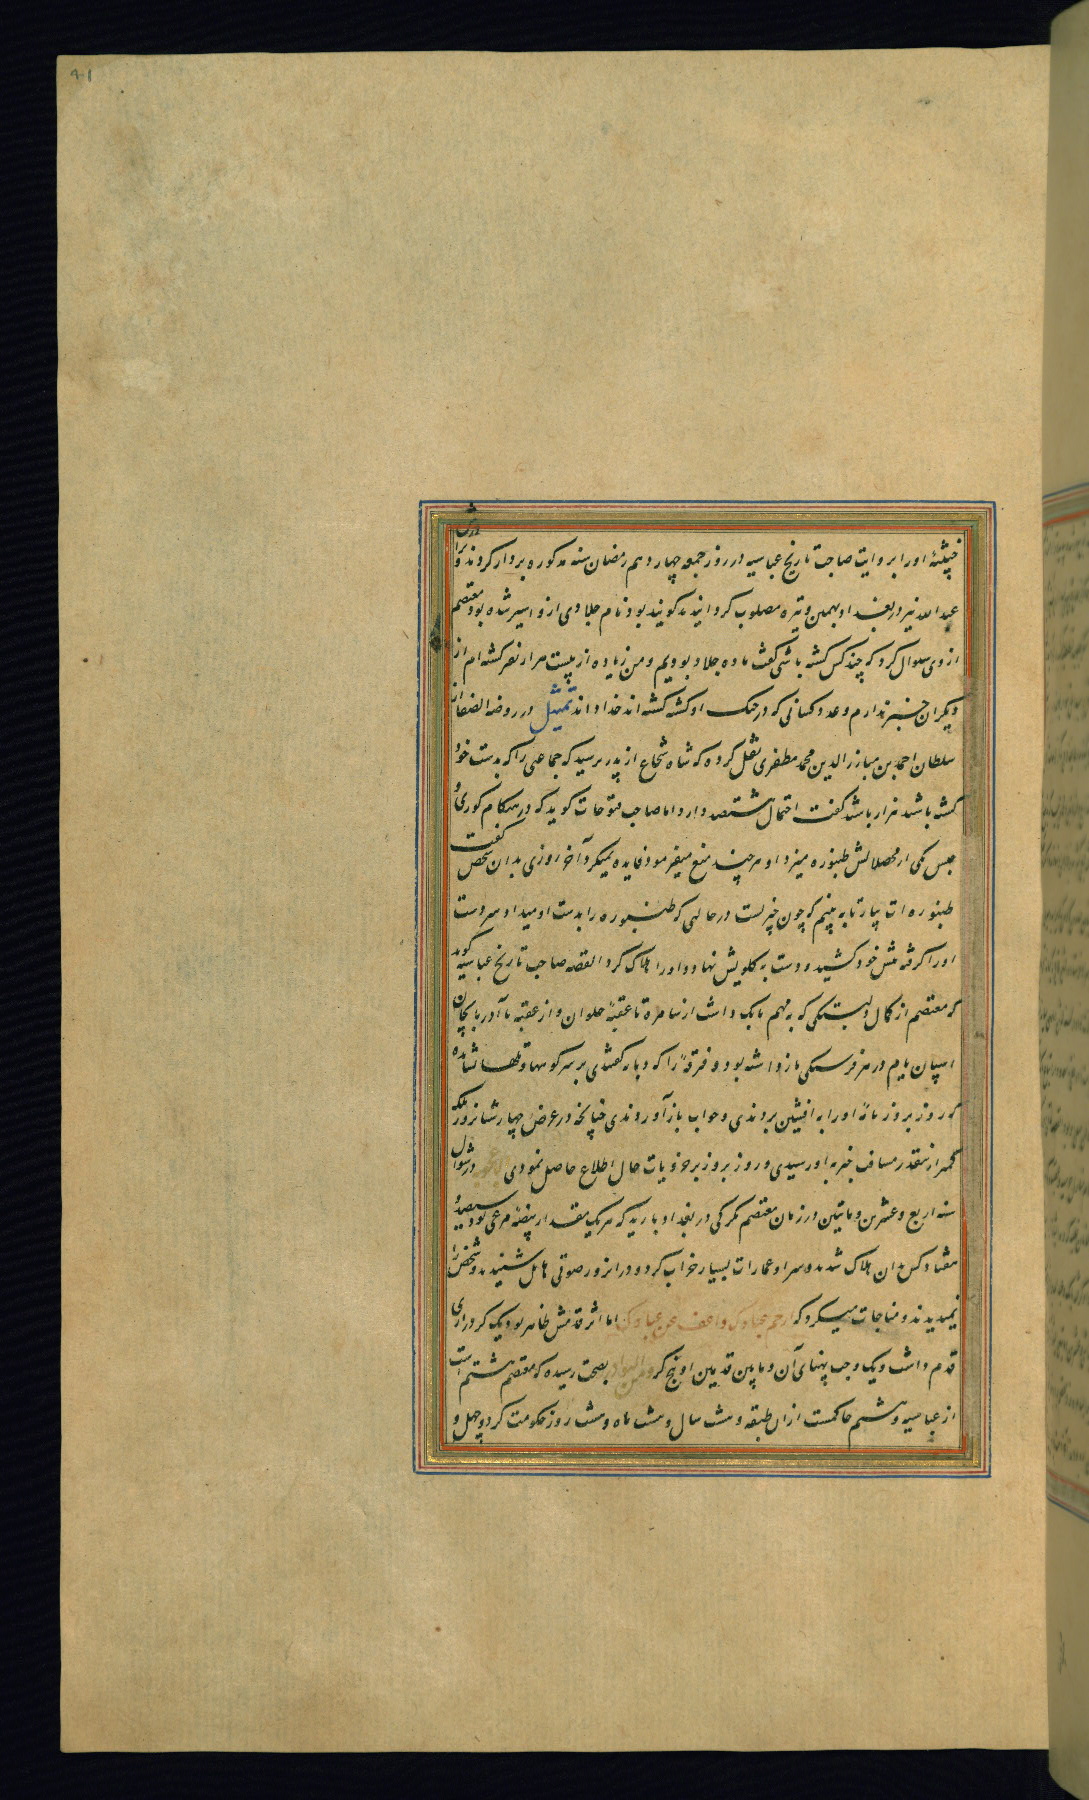 ۴۱
خبیثهٔ او را بروایت صاحب تاریخ عباسیه در روز جمعه چهاردهم رمضان سنه مذکوره بردار کردند و برادرش
عبدالله نیز در بغداد بهمین وتیره مصلوب کردانیدند کویند بودنام جلادی از و اسیر شده بود معتصم
از وی سوال کرد که چند کس کشته باشی کفت ما ده جلاد بودیم و من زیاده از بیست هزار نفر کشته ام از
دیکران خبر ندارم و عدد کسانی که در جنک او کشته کشته اند خدا داند تمثیل در روضة الصفا از
سلطان احمد بن مبارزالدین محمد مظفری نقل کرده که شاه شجاع از پدر پرسید که جماعتی را که بدست خود
کشته باشد هزار باشد کفت احتمال هشتصد دارد اما صاحب فتوحات کوید که در هنکام کوری و
حبس یکی از محصلانش طنبوره میزد او هر چند منع میفرمود فایده نمیکرد آخر روزی بدان شخص کفت
طنبوره ات بیار تا به بینم که چون چیزیست در حالتی که طنبوره را بدست او میداد سر دست
او را کرفته پیش خود کشید و دست به کلویش نهاد و او را هلاک کرد القصه صاحب تاریخ عباسیه کوید
که معتصم از کمال دلبستکی که به مهم بابک داشت از سامره تا عقبهٔ حلوان و از عقبه تا آذربایجان
اسپان یام در هر فرسنکی بازداشته بود و فرقهٔ را که دبا کفتندی بر سر کوهها و تلها نشانده
که روز بروز نامهٔ او را به افشین بردندی و جواب باز آوردندی چنانچه در عرض چهار شبانروز بلکه
کمتر از آنقدر مسافت خبر به او رسیدی و روز بروز بر جزویات حال اطلاع حاصل نمودی در شوال
سنه اربع و عشرین و مأتین در زمان معتصم تکرکی در بغداد بارید که هر یک بمقدار بیضهٔ مرغی بود سیصد و
هفتاد کس بدان هلاک شدند و سراو عمارات بسیار خراب کرد و در انروز صوتی هایل شنیدند و شخص را
نمیدیدند و مناجات میکرد که ارحم عبادک و اعف عن عبادک اما اثر قدمش ظاهر بود یک کز درازی
قدم داشت و یک وجب پهنای آن و مابین قدمین او پنج کز بصحت رسیده که معتصم هشتم است
از عباسیه و هشتم حاکمست ازان طبقه و هشت سال و هشت ماه و هشت روز حکومت کرد و چهل و